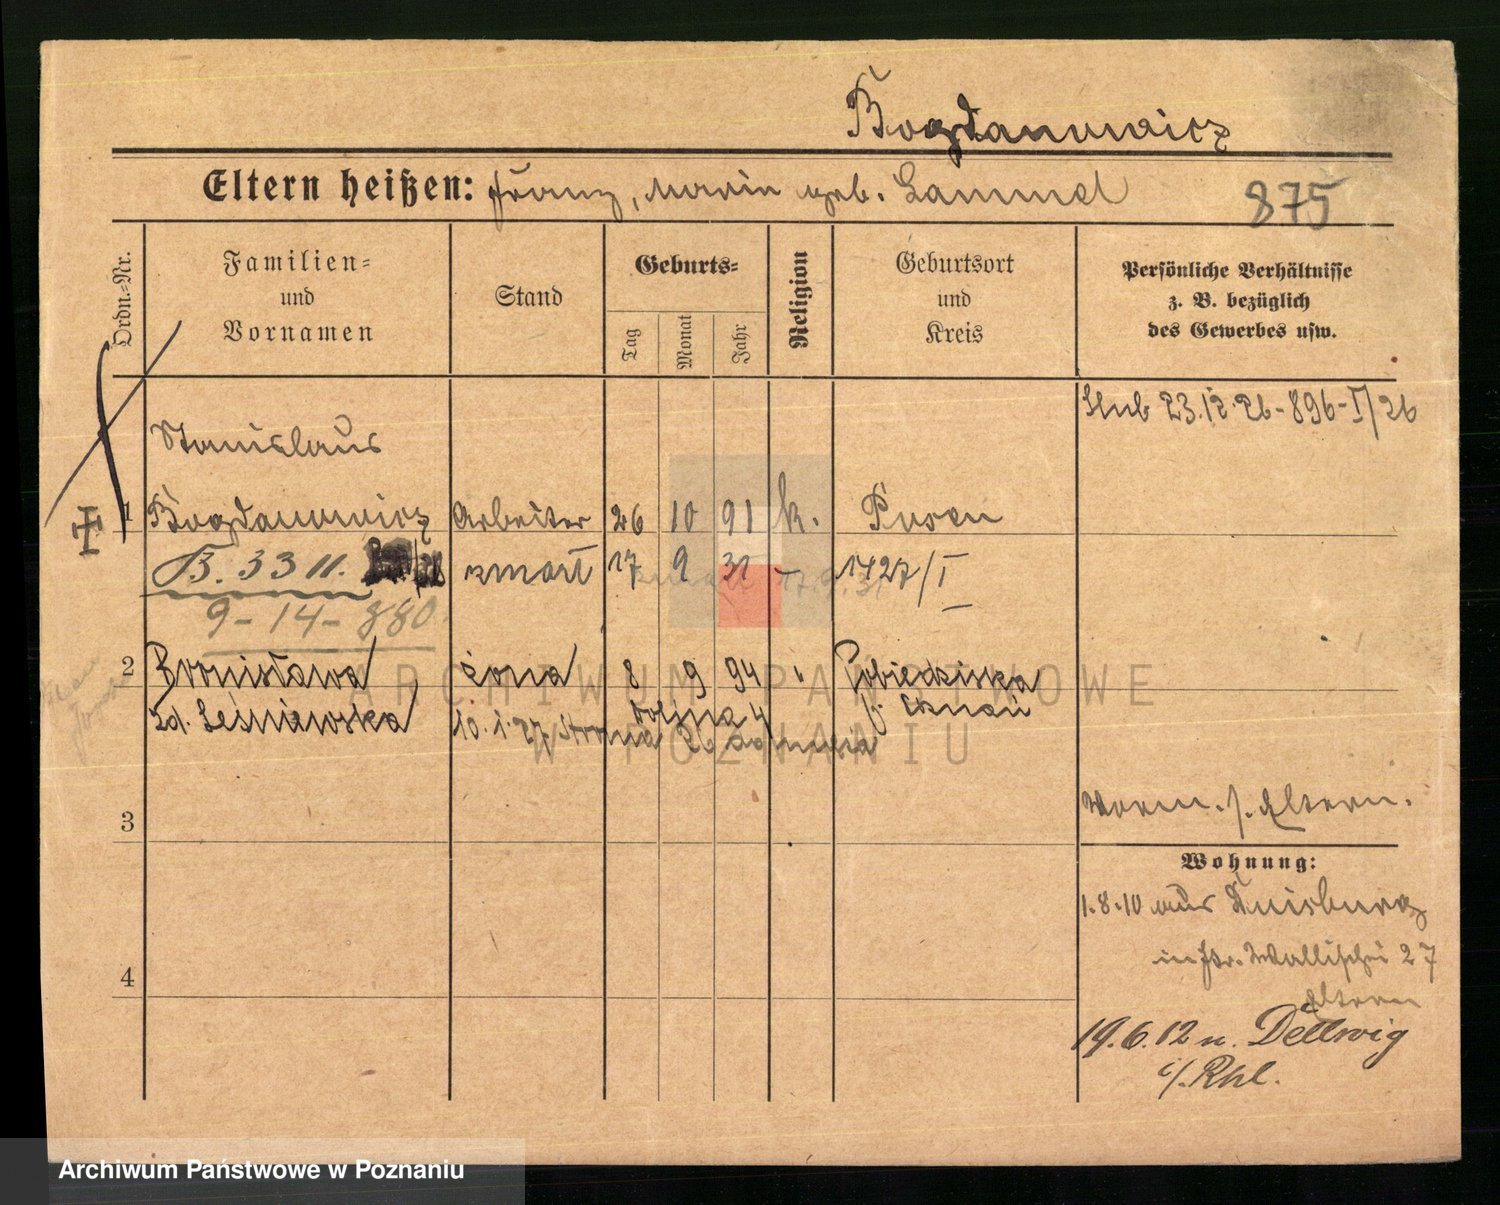 Bogdanowicz
Eltern heißen: Franz, Maria geb. Lammel
875
Ordn.-Nr.
Familien-
und
Vornamen
Stand
Geburts-
Tag
Monat
Jahr
Religion
Geburtsort
und
Kreis
Persönliche Verhältnisse
z. B. bezüglich
des Gewerbes usw.
Ślub 23.12.26-896-I/26
Stanislaus
1 Bogdanowicz Arbeiter 26 10 91 k. Posen
B. 3311. zmarł 17 9 31 - 1427/I
zmarł 17.9.31
9-14-880
2 Bronisława żona 8 9 94 " Pobiedziska
zd. Leśniewska
10.1.27.
3
Vorm. s. Eltern.
Wohnung:
1.8.10 aus Duisburg
Wallischei 27
4
Eltern
19.6.12 n. Dellwig
i/. Rhl.
ARCHIWUM PAŃSTWOWE
W POZNANIU
Archiwum Państwowe w Poznaniu